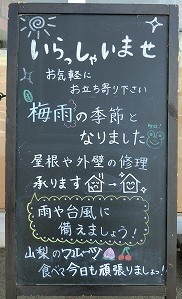 いらっしゃいませ
お気軽に
お立ち寄り下さい
梅雨の季節と
なりました
屋根や外壁の修理
承ります
雨や台風に
備えましょう！
山梨のフルーツ
食べ今日も頑張りましょっ！